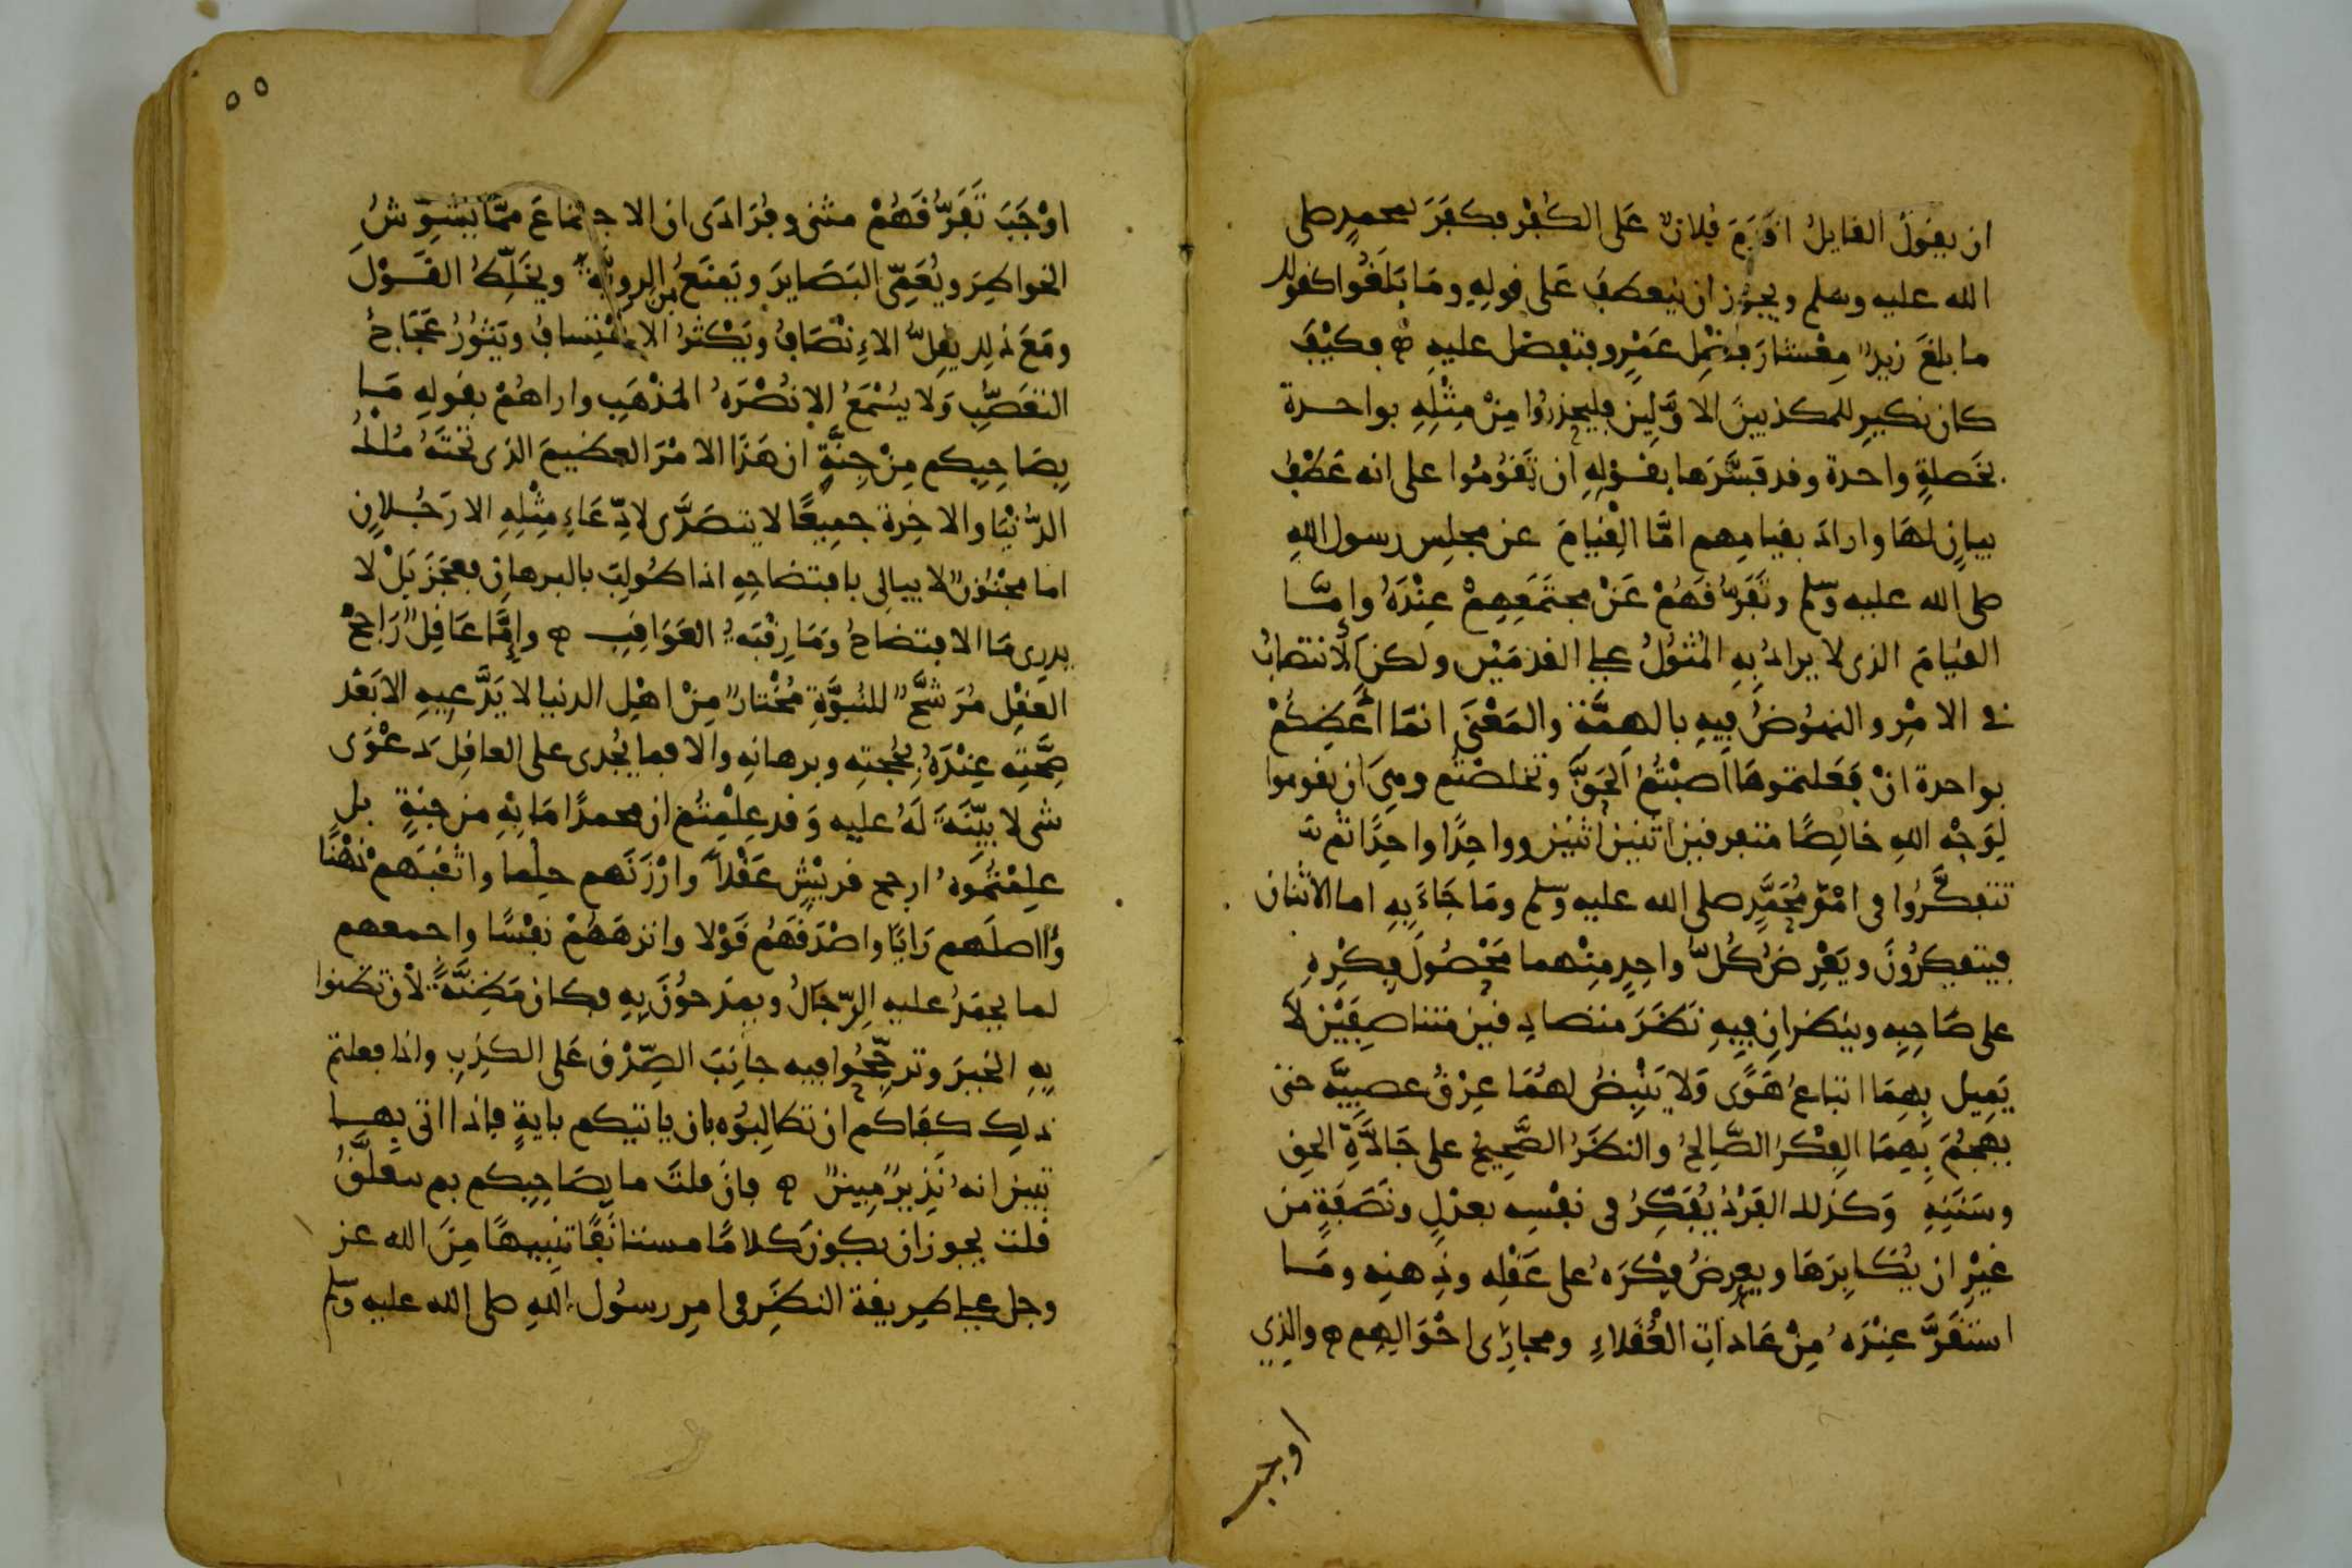 ان يقول القايل اقدم فلان على الكفر فكفر بمحمد صلى
الله عليه وسلم ويجوز ان ينعطف على قوله وما بلغوا كقولك
ما بلغ زيد معشار فضل عمرو فتفضل عليه ه فكيف
كان نكير للمكذبين الاولين فليحذروا من مثله بواحدة
بخصلة واحدة وقد فسرها بقوله ان تقوموا على انه عطف
بيان لها واراد بقيامهم اما القيام عن مجلس رسول الله
صلى الله عليه وسلم وتفرقهم عن مجتمعهم عنده وإما
القيام الذى لا يراد به المثول على القدمين ولكن الانتصاب
في الامر والنهوض فيه بالهمة والمعنى انما اعظكم
بواحدة ان فعلتموها اصبتم الحق وتخلصتم وهى ان تقوموا
لوجه الله خالصا متفرقين اثنين اثنين وواحدا واحدا ثم ت
تتفكروا فى امر محمد صلى الله عليه وسلم وما جاء به اما الاثنان
فيتفكرون ويعرض كل واحد منهما محصول فكره
على صاحبه وينظران فيه نظر متصادقين متناصفين لا
يميل بهما اتباع هوى ولا ينبض لهما عرق عصبية حتى
يهجم بهما الفكر الصالح والنظر الصحيح على جادة الحق
وسننه وكذلك الفرد يفكر فى نفسه بعدل ونصفة من
غير ان يكابرها ويعرض فكره على عقله وذهنه وما
استقر عنده من عادات العقلاء ومجارى احوالهم ه والذي
اوجب
٥٥
اوجب تفرقهم مثنى وفرادى ان الاجتماع مما يشوش
الخواطر ويعمى البصاير ويمنع من الروية ويخلط القول
ومع ذلك يقل الانصاف ويكثر الاعتساف ويثور عجاج
التعصب ولا يسمع الا نصره المذهب واراهم بقوله ما
بصاحبكم من جنة ان هذا الامر العظيم الذى تحته ملك
الدنيا والاخرة جميعا لا يتصدى لادعاء مثله الا رجلان
اما مجنون لا يبالى بافتضاحه اذا طولب بالبرهان فعجز بل لا
يدرى ما الافتضاح وما رقبة العواقب ه وإما عاقل راجح
العقل مرشح للنبوة مختار من اهل الدنيا لا يدعيه الا بعد
صحته عنده بحجته وبرهانه والا فما يجدى على العاقل دعوى
شى لا بينة له عليه وقد علمتم ان محمدا ما به من جنة بل
علمتموه ارجح قريش عقلا وارزنهم حلما واثقبهم ذهنا
وااصلهم رايا واصدقهم قولا وانزههم نفسا واجمعهم
لما يحمد عليه الرجال ويمدحون به فكان مظنة لان تظنوا
به الخير وترجحوا فيه جانب الصدق على الكذب واذا فعلتم
ذلك كفاكم ان تطالبوه بان ياتيكم باية فاذا اتى بها
تبين انه نذير مبين ه فان قلت ما بصاحبكم بم يتعلق
قلت يجوز ان يكون كلاما مستانفا تنبيها من الله عز
وجل على طريقة النظر فى امر رسول الله صلى الله عليه وسلم